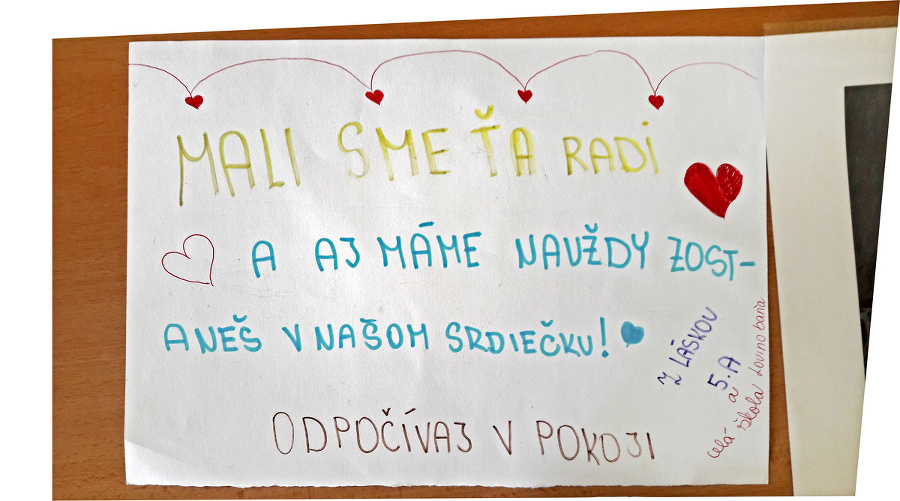 MALI SME ŤA RADI
A AJ MÁME NAVŽDY ZOST-
ANEŠ V NAŠOM SRDIEČKU!
Z LÁSKOU
5.A
a
celá škola Lovinobaňa
ODPOČÍVAJ V POKOJI